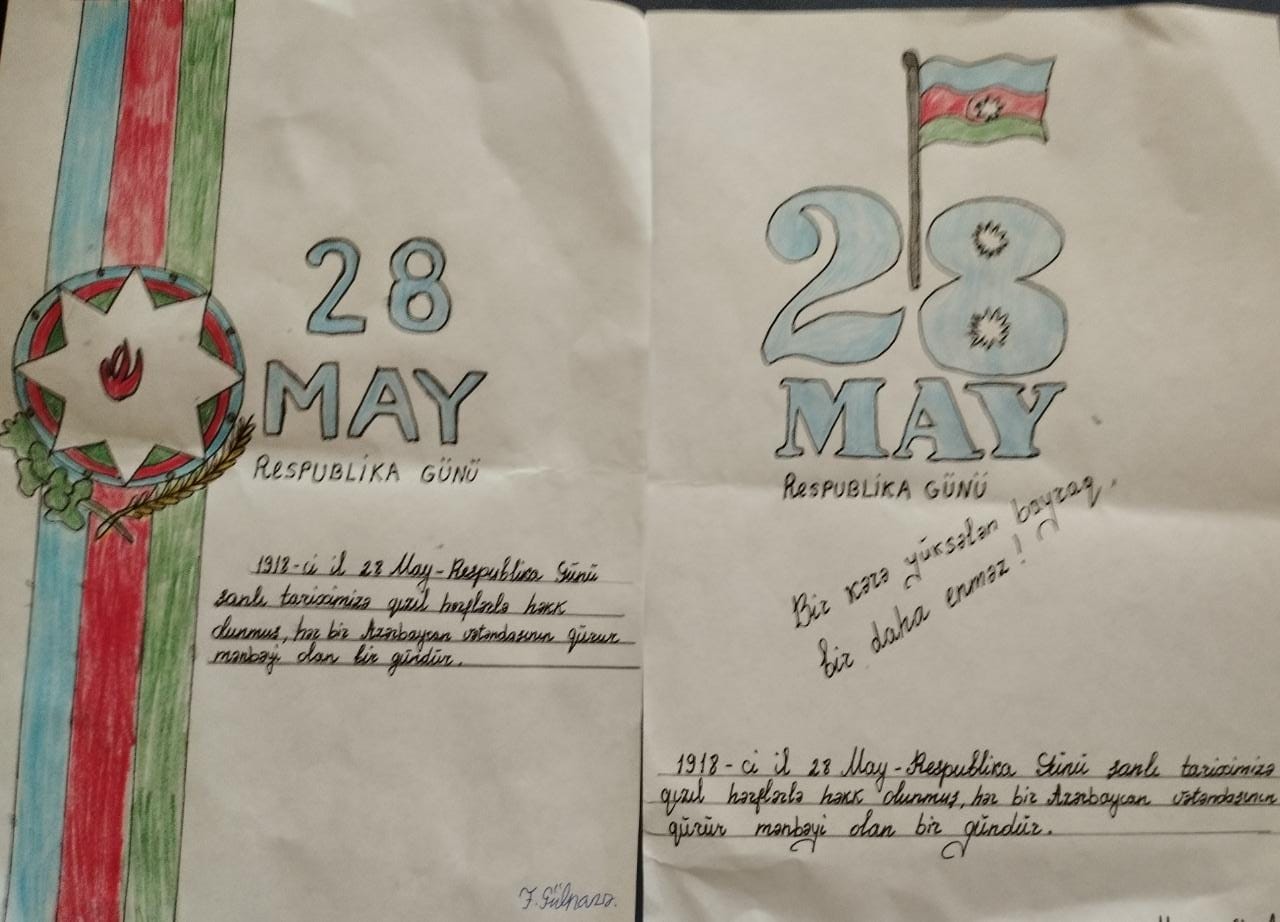 28
MAY
RESPUBLİKA GÜNÜ
1918-ci il 28 May-Respublika Günü
şanlı tariximizə qızıl hərflərlə həkk
olunmuş, hər bir Azərbaycan vətəndaşının qürur
mənbəyi olan bir gündür.
28
MAY
RESPUBLİKA GÜNÜ
Bir kərə yüksələn bayraq,
bir daha enməz!
1918-ci il 28 May-Respublika Günü şanlı tariximizə
qızıl hərflərlə həkk olunmuş, hər bir Azərbaycan vətəndaşının
qürur mənbəyi olan bir gündür.